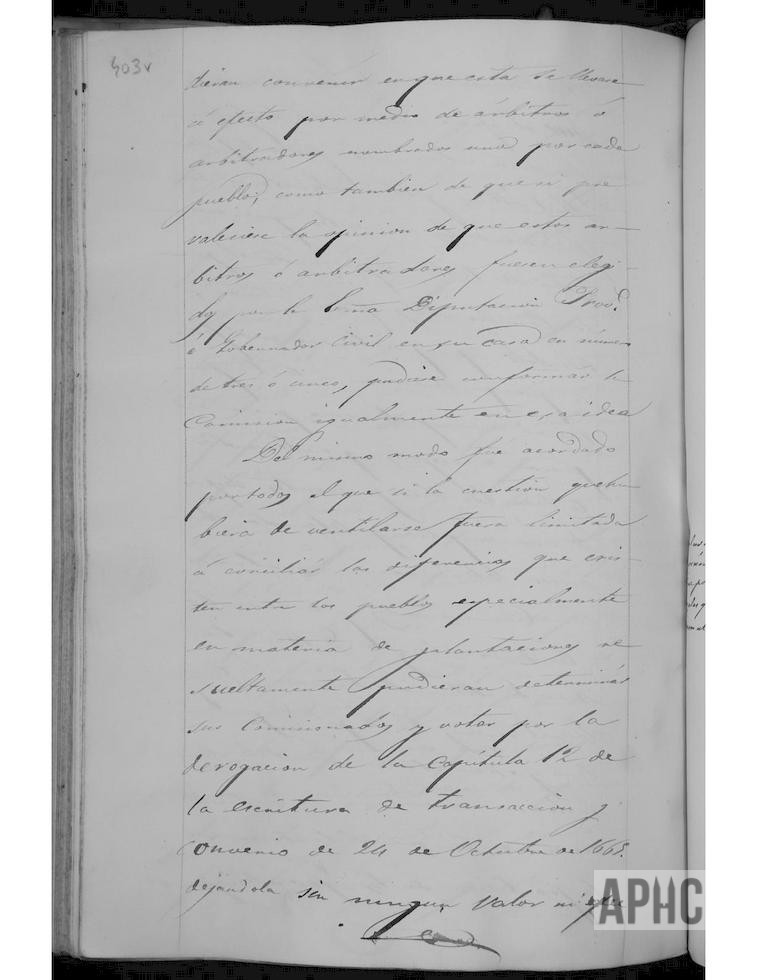 403v
dieran convenir en que esta se llevase
á efecto por medio de árbitros ó
arbitradores nombrados uno por cada
pueblo, como tambien de que si pre
valeciese la opinion de que estos ar-
bitros ó arbitradores fuesen elegi-
dos por la Diputacion Prov.l
ó Gobernador Civil en su caso en número
de tres ó cinco, pudiese conformar la
Comision igualmente en esa idea
Del mismo modo fue acordado
por todos el que si la cuestion que hu
biera de ventilarse fuera limitada
á conciliar las diferencias que exis-
ten entre los pueblos especialmente
en materia de plantaciones re
sueltamente pudieran determinar
sus Comisionados y votar por la
derogacion de la Capitula 12 de
la escritura de transaccion y
convenio de 24 de Octubre de
dejandola sin ningun valor ni efec
APHC